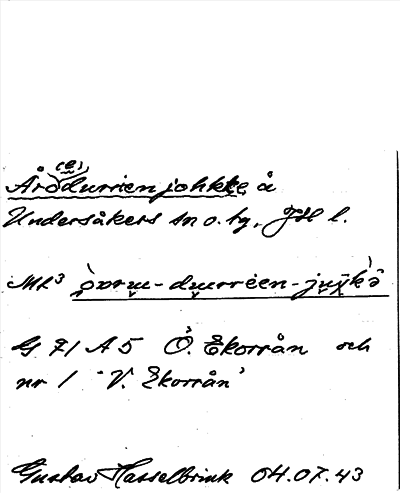 (e)
Åroddurrienjohkke å
Undersåkers sn o. hg, JH l.
ML³ o̭arṳ-dṳrréen-jṳχ̄kə̀
G 71 A 5 Ö. Ekorrån och
nr 1 "V. Ekorrån"
Gustav Hasselbrink 04.07.43